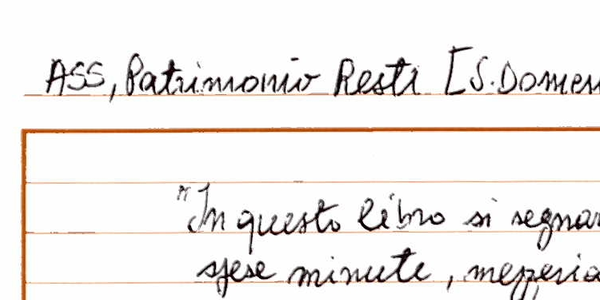 ASS, Patrimonio Resti [S. Domen
"In questo libro si segnar
spese minute, mezzeria